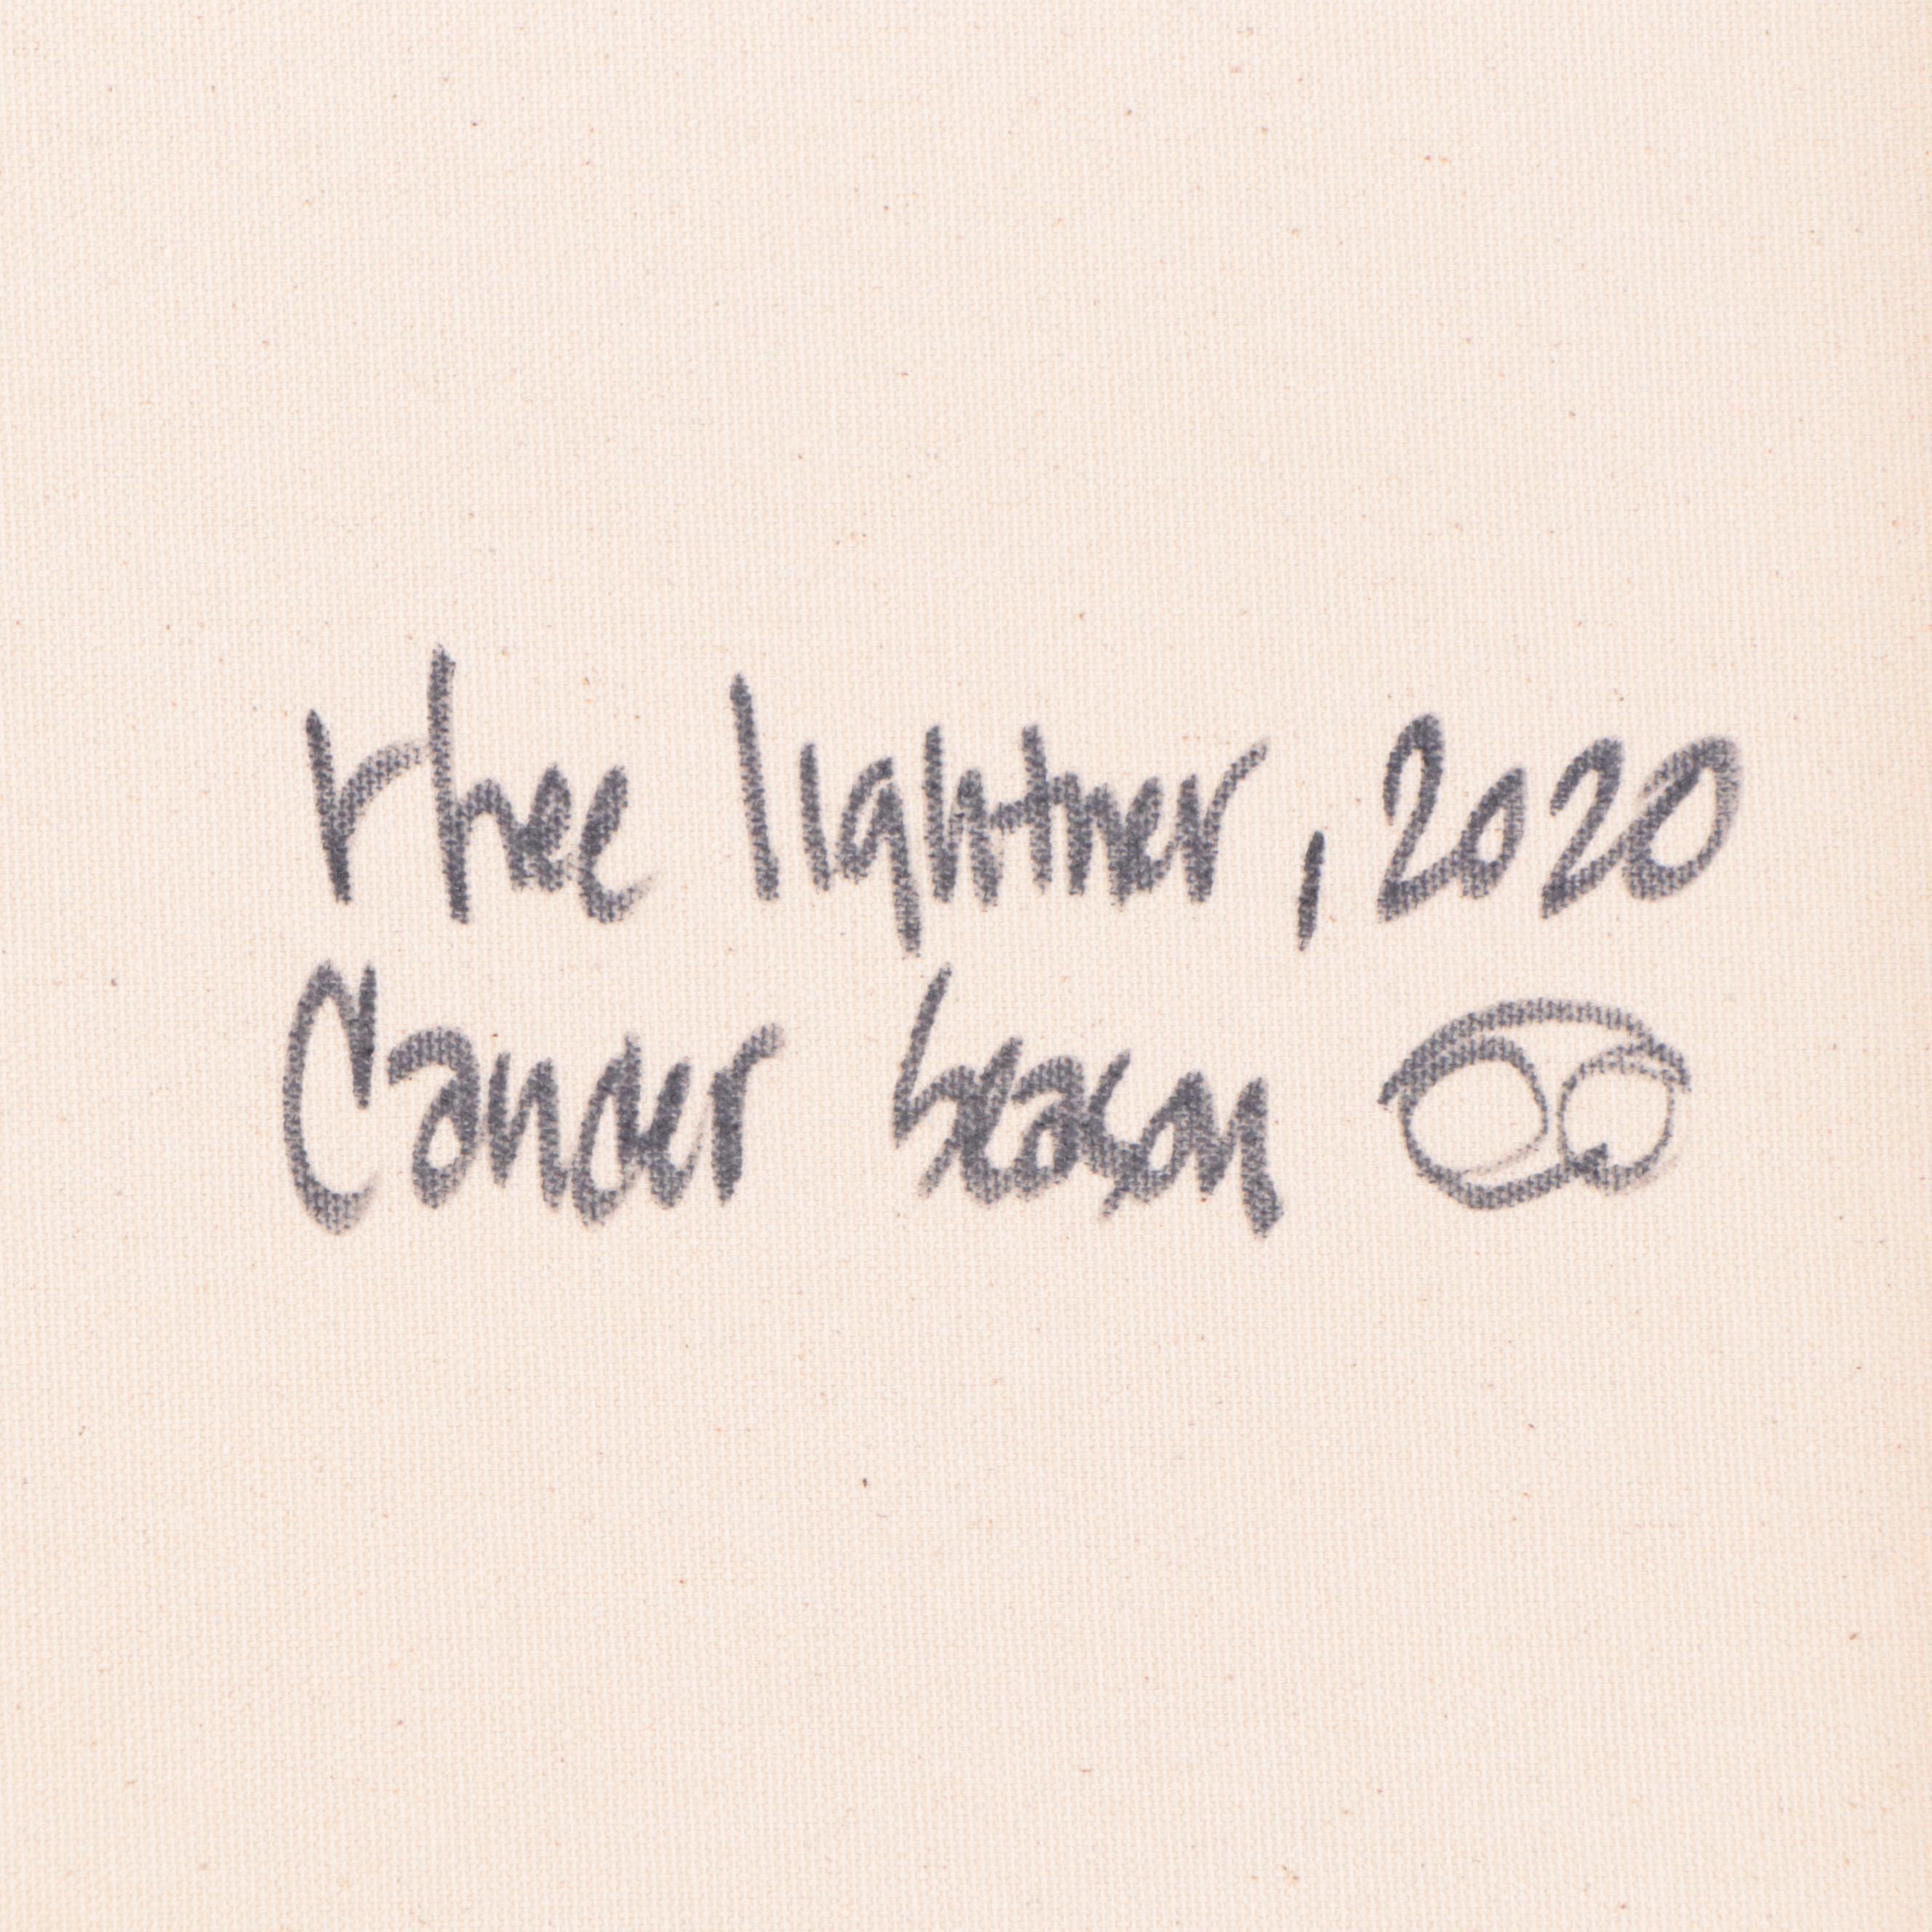 rhee lightner, 2020
Cancer season ♋